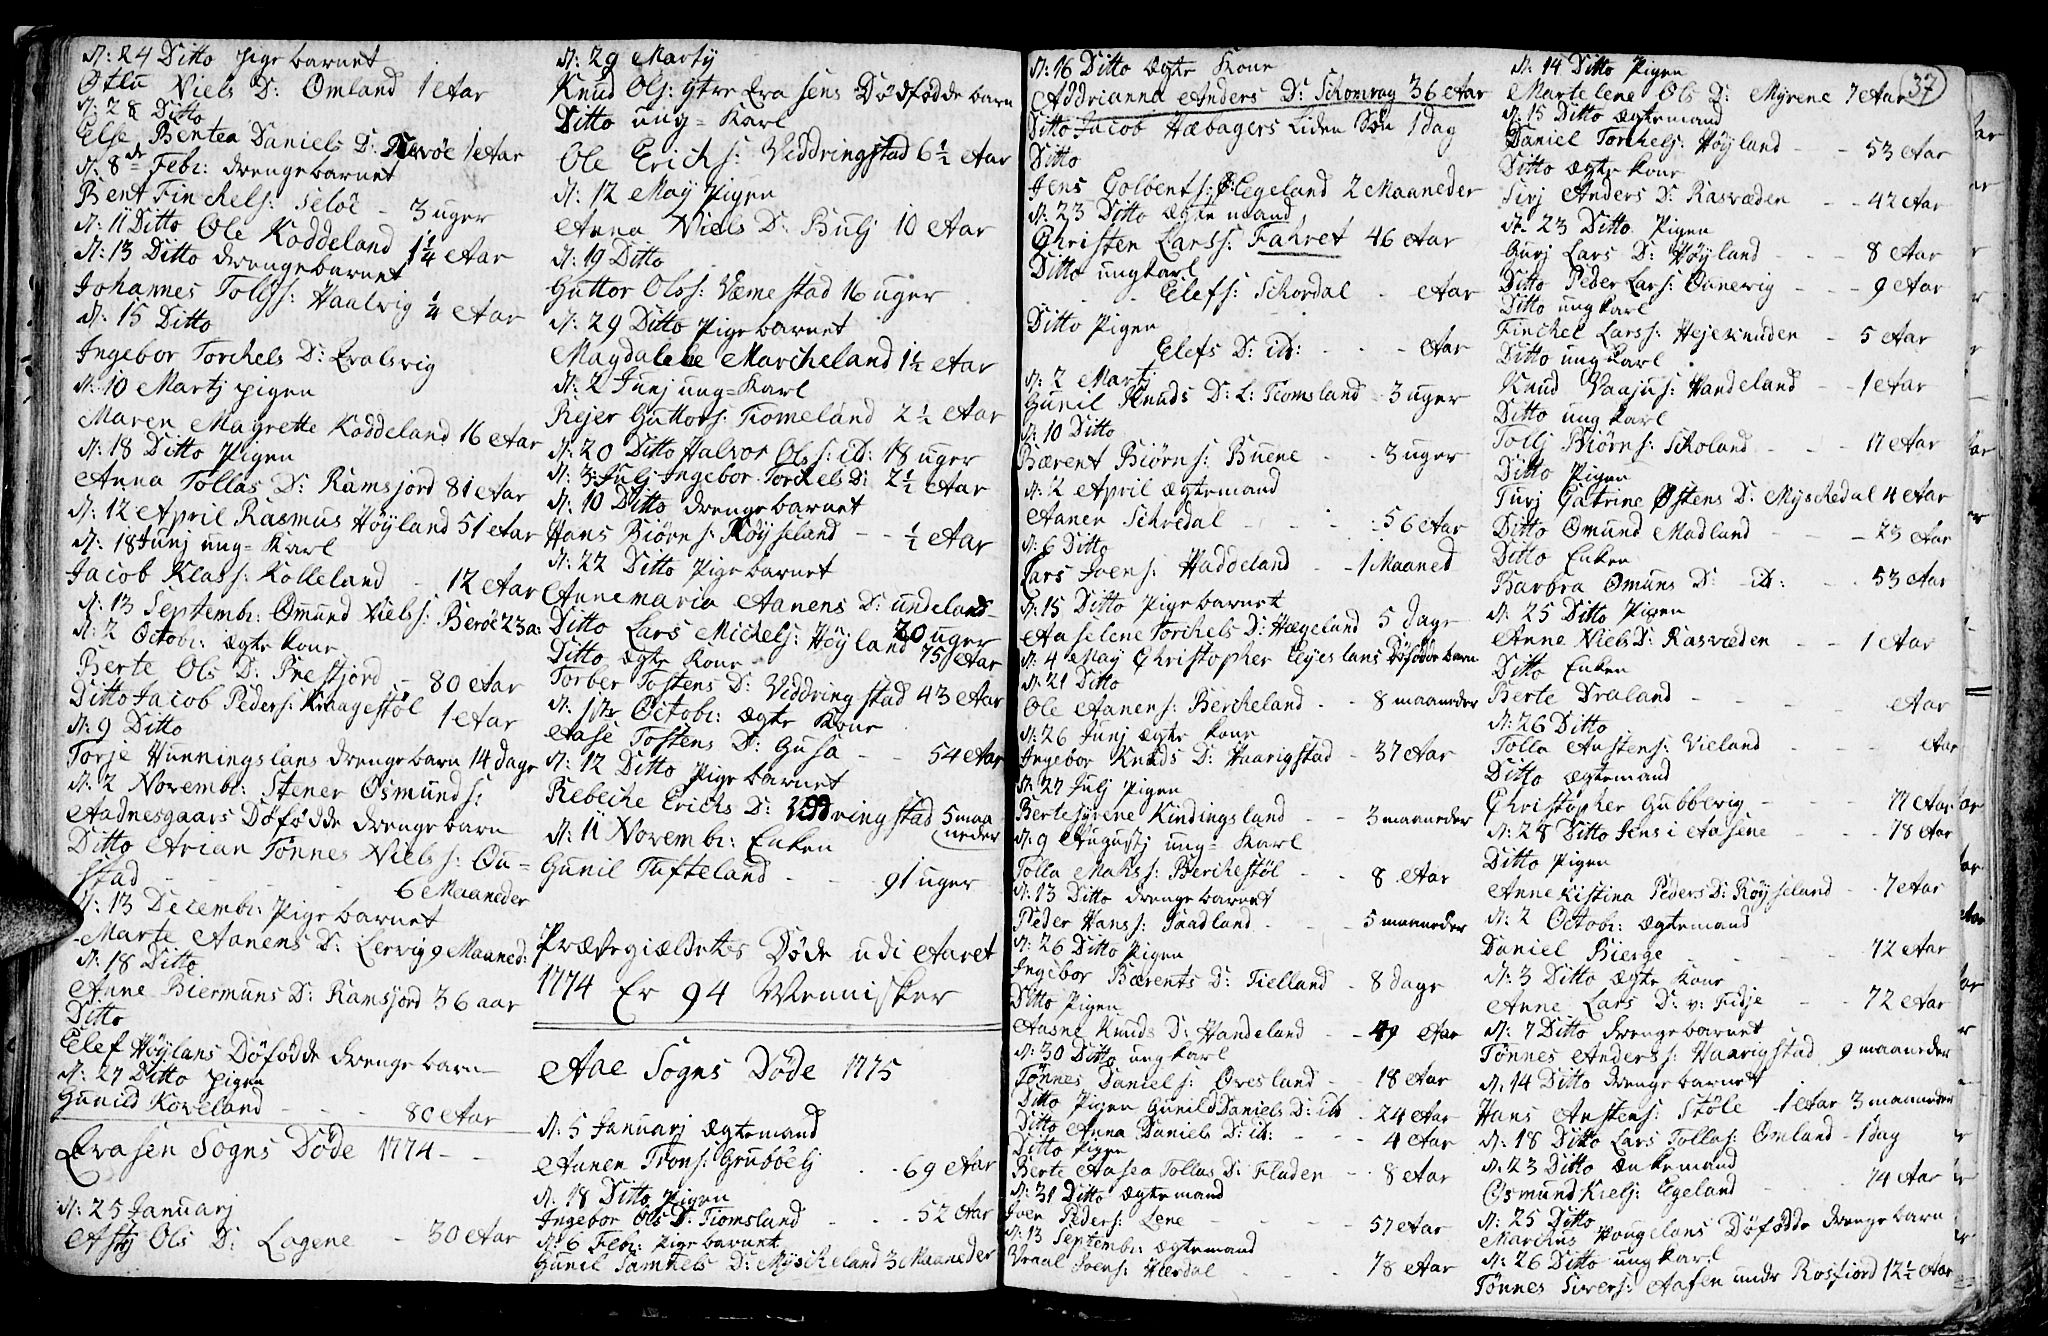 N: 24 Ditto pige barnet
Otlu Niels D: Omland 1 Aar
N: 28 Ditto
Else Bentea Daniels D: 1 Aar
N: 8de Febr: drengebarnet
Bent Finckels: Seløe - 3 uger
N: 11 Ditto Ole Koddeland 1 1/4 Aar
N: 13 Ditto drengebarnet
Johannes Tollss: Haalvig 1/4 Aar
N: 15 Ditto
Ingebor Torchels D: Qvalsvig
N: 10 Martj pigen
Maren Magrette Koddeland 16 Aar
N: 18 Ditto Pigen
Anna Tollas D: Ramsjord 81 Aar
N: 12 April Rasmus Høyland 51 Aar
N: 18 Junj ung-Karl
Jacob Klass: Kolleland - 12 Aar
N: 13 Septembr: Omund Niels s: Berøe 23 a:
N: 2 Octobr: ægte kone
Berte Ols D: Prestjord - 80 Aar
Ditto Jacob Peders: Kraagestøl 1 Aar
N: 9 Ditto
Torje Hunningslans drengebarn 14 dage
N: 2 Novembr: Stener Osmunds:
Aadnesgaars Døfødde drengebarn
Ditto Arian Tønnes Niels s: Ou-
stad - - - 6 Maaneder
N: 13 Decembr: Pige barnet
Marte Aanens D: Lervig 9 Maaned:
N: 18 Ditto
Anne Biermuns D: Ramsjord 36 aar
Ditto
Elef Høylans Døfødde drengebarn
N: 27 Ditto pigen
Gunild Koveland - - - 80 Aar
Qvasen Sogns Døde 1774 - -
N: 25 Januarj
Asty Ols D: Lagene - 30 Aar
N: 29 Martij
Knud Ols: ytre Qvasens Dødfødde barn
Ditto ung-Karl
Ole Erichs: Viddringstad 6 1/2 Aar
N: 12 May Pigen
Anna Niels D: Bulj 10 Aar
N: 19 Ditto
Guttor Olss: Vemestad 16 uger
N: 29 Ditto Pige barnet
Magdalene Marcheland 1 1/2 Aar
N: 2 Junj ung-Karl
Rejer Guttors: Fiomeland 2 1/2 Aar
N: 20 Ditto Halvor Ols s: id: 18 uger
N: 3 Julj Ingebor Torchels D: 2 1/2 Aar
N: 10 Ditto drengebarnet
Hans Biørns: Røyseland - - 1/2 Aar
N: 22 Ditto Pige barnet
Annemaria Aanens D: undeland-
20 uger
Ditto Lars Michels: Høyland 75 Aar
Ditto ægte Kone
Torber Tostens D: Viddringstad 43 Aar
N: 1ste Octobr: ægte Kone
Aase Tostens D: Gusa - - 54 Aar
N: 12 Ditto Pige barnet
Rebeche Erichs D: Viddringstad 5 maa
neder
N: 11 Novembr: Enken
Gunil Tufteland - - - 91 uger
Præstegiældets Døde udi Aaret
1774 Er 94 Mennisker
Aae Sogns Døde 1775
N: 5 Januarj ægtemand
Aanen Trons: Grubøelj - - 69 Aar
N: 18 Ditto Pigen
Ingebor Ols D: Fiomsland - - - 52 Aar
N: 6 Febr: Pige barnet
Gunil Samuels D: Myscheland 3 Maaneder
N: 16 Ditto ægte Kone
Addrianna Anders D: Skomrag 36 Aar
Ditto Jacob Hæbagers Liden Søn 1 dag
Ditto
Jens Golbents: Egeland 2 Maaneder
N: 23 Ditto ægte mand
Christen Larss: Fahret 46 Aar
Ditto ungkarl
- - Elefs: Schordal - Aar
Ditto Pigen
Elefs D: id: - - - Aar
N: 2 Martj
Gunil Knuds D: L: Fiomsland - 3 uger
N: 10 Ditto
Bærent Biørns: Buene - - 3 uger
N: 2 April ægtemand
Aanen Schredal - - - 56 Aar
N: 6 Ditto
Lars Ivens: Haddeland - - 1 Maaned
N: 15 Ditto Pige barnet
Aaselene Torchels D: Hægeland 5 dage
N: 4 May Christopher Eyeslans Døfødde barn
N: 21 Ditto
Ole Aanens: Bercheland - - 8 maaneder
N: 26 Junj ægte kone
Ingebor Knuds D: Haarigstad - 37 Aar
N: 27 Julj Pigen
Bertesyrene Kindingsland - - 3 maaneder
N: 9 Augustj ung-Karl
Tolla Mahss: Berchestøl - - 8 Aar
N: 13 Ditto drengebarnet
Peder Hanss: Saadland - - - 5 maaneder
N: 26 Ditto Pigen
Ingebor Bærents D: Fielland - 8 dage
Ditto Pigen
Aasne Knuds D: Handeland - - 49 Aar
N: 30 Ditto ungkarl
Tønnes Daniels: Øvesland - - 18 Aar
Ditto Pigen Gunild Daniels D: id - 24 Aar
Ditto Anna Daniels D: id: - - - 4 Aar
Ditto Pigen
Berte Aasea Tollas D: Fladen - - 8 Aar
N: 31 Ditto ægtemand
Iver Peders: Lene - - - - 57 Aar
N: 13 Septembr: ægtemand
Vraal Svens: Hærdal - - - 78 Aar
37
N: 14 Ditto Pigen
Martelene Ols D: Myrene 7 Aar
N: 15 Ditto ægtemand
Daniel Torchels: Høyland - - 53 Aar
Ditto ægte kone
Sirj Anders D: Rasvæden - - 42 Aar
N: 23 Ditto Pigen
Gurj Lars D: Høyland - - - 8 Aar
Ditto Peder Lars: Ounevig - - - 9 Aar
Ditto ungkarl
Finchel Larss: Hejeknuden - 5 Aar
Ditto ungkarl
Knud Vaajus: Handeland - - 1 Aar
Ditto ungkarl
Tollj Biørns: Skoland - - - 17 Aar
Ditto Pigen
Turj Catrine Østens D: Myschedal 4 Aar
Ditto Omund Madland - - - 23 Aar
Ditto Enken
Barbra Omuns D: id: - - 53 Aar
N: 25 Ditto Pigen
Anne Niels D: Rasvæden - - 1 Aar
Ditto Enken
Berte Draland - - - - Aar
N: 26 Ditto
Tolla Anstens: Vieland - - - Aar
Ditto ægtemand
Christopher Gubbevig - - - 77 Aar
N: 28 Ditto Jens i Aasene - - - 78 Aar
Ditto Pigen
Anne Kistina Peders D: Røyseland - - 7 Aar
N: 2 Octobr: ægtemand
Daniel Bierge - - - - 72 Aar
N: 3 Ditto ægte Kone
Anne Lars D: v: Fidje - - 72 Aar
N: 7 Ditto drengebarnet
Tønnes Anderss: Haarigstad 9 maaneder
N: 14 Ditto drengebarnet
Hans Anstens: Støle 1 Aar 3 maaneder
N: 18 Ditto Lars Tollas: Omland - 1 dag
N: 23 Ditto Enkemand
Osmund Kiels: Egeland - - 74 Aar
N: 25 Ditto
Marchus Hougelans Døfødde drengebarn
N: 26 Ditto ungkarl
Tønnes Sivers: Aasen undr Rosfiord 12 1/2 Aar